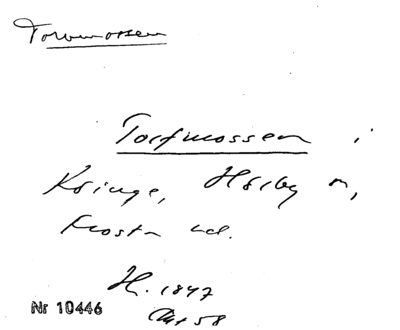 Torvmossen
Torfmossen i
Kringe, Hörby sn,
Frosta hd.
H. 1847
58
Nr 10446